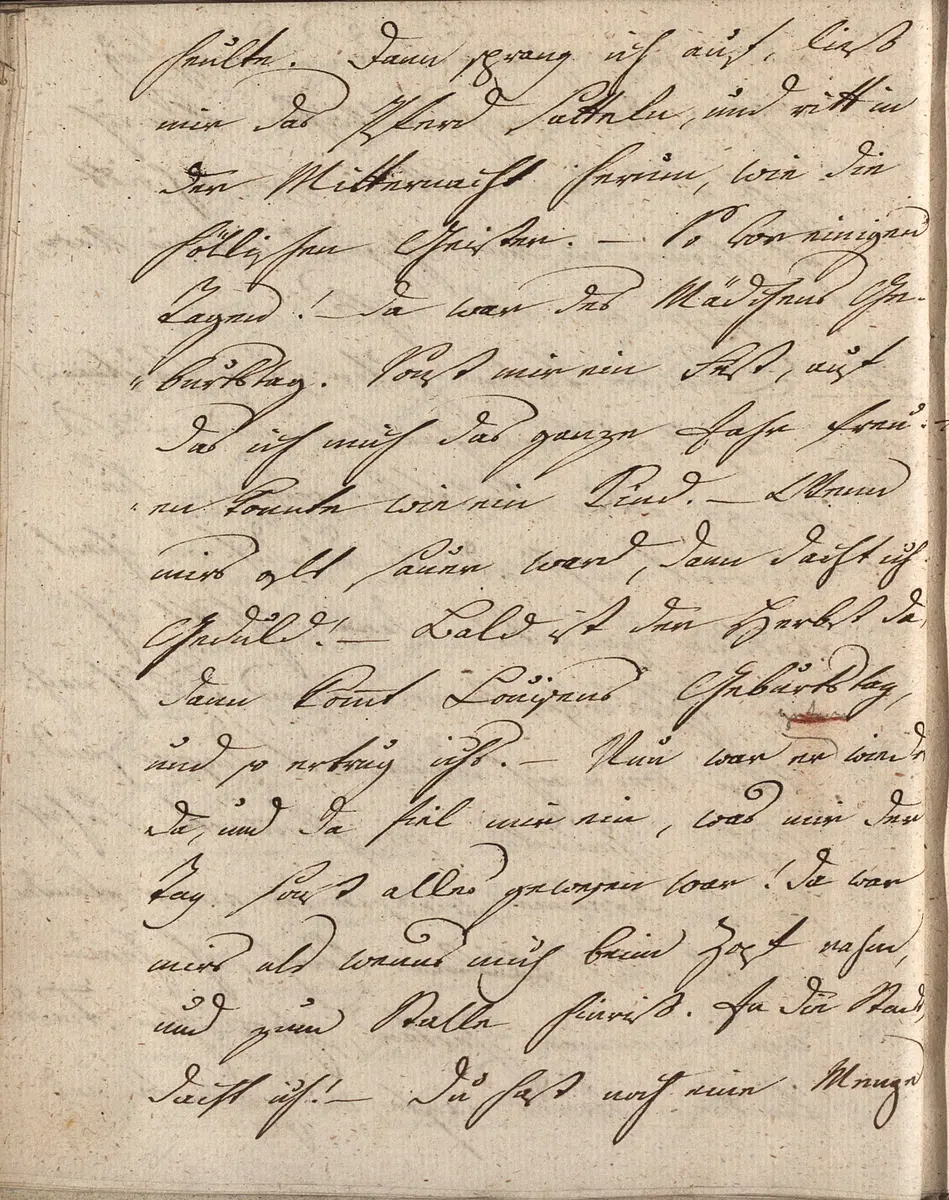 heulte. Dann sprang ich auf, ließ
mir das Pferd satteln, und ritt in
der Mitternacht herum, wie die
höllischen Geister. – So vor einigen
Tagen! – da war des Mädchens Ge-
"burtstag. Sonst mir ein Fest, auf
das ich mich das ganze Jahr freu-
-en konnte wie ein Kind. – Wenn
mirs oft sauer ward, dann dacht ich
Geduld! – Bald ist der Herbst da,
dann kom̅t Louisens Geburtstag,
und so ertrug ichs. – Nun war er wieder
da, und da fiel mir ein, was mir der
Tag sonst alles gewesen war! da war
mirs als wenns mich beim Zopf nahm,
und zum Stalle hinriß. In die Stadt,
dacht ich! – Du hast noch eine Menge